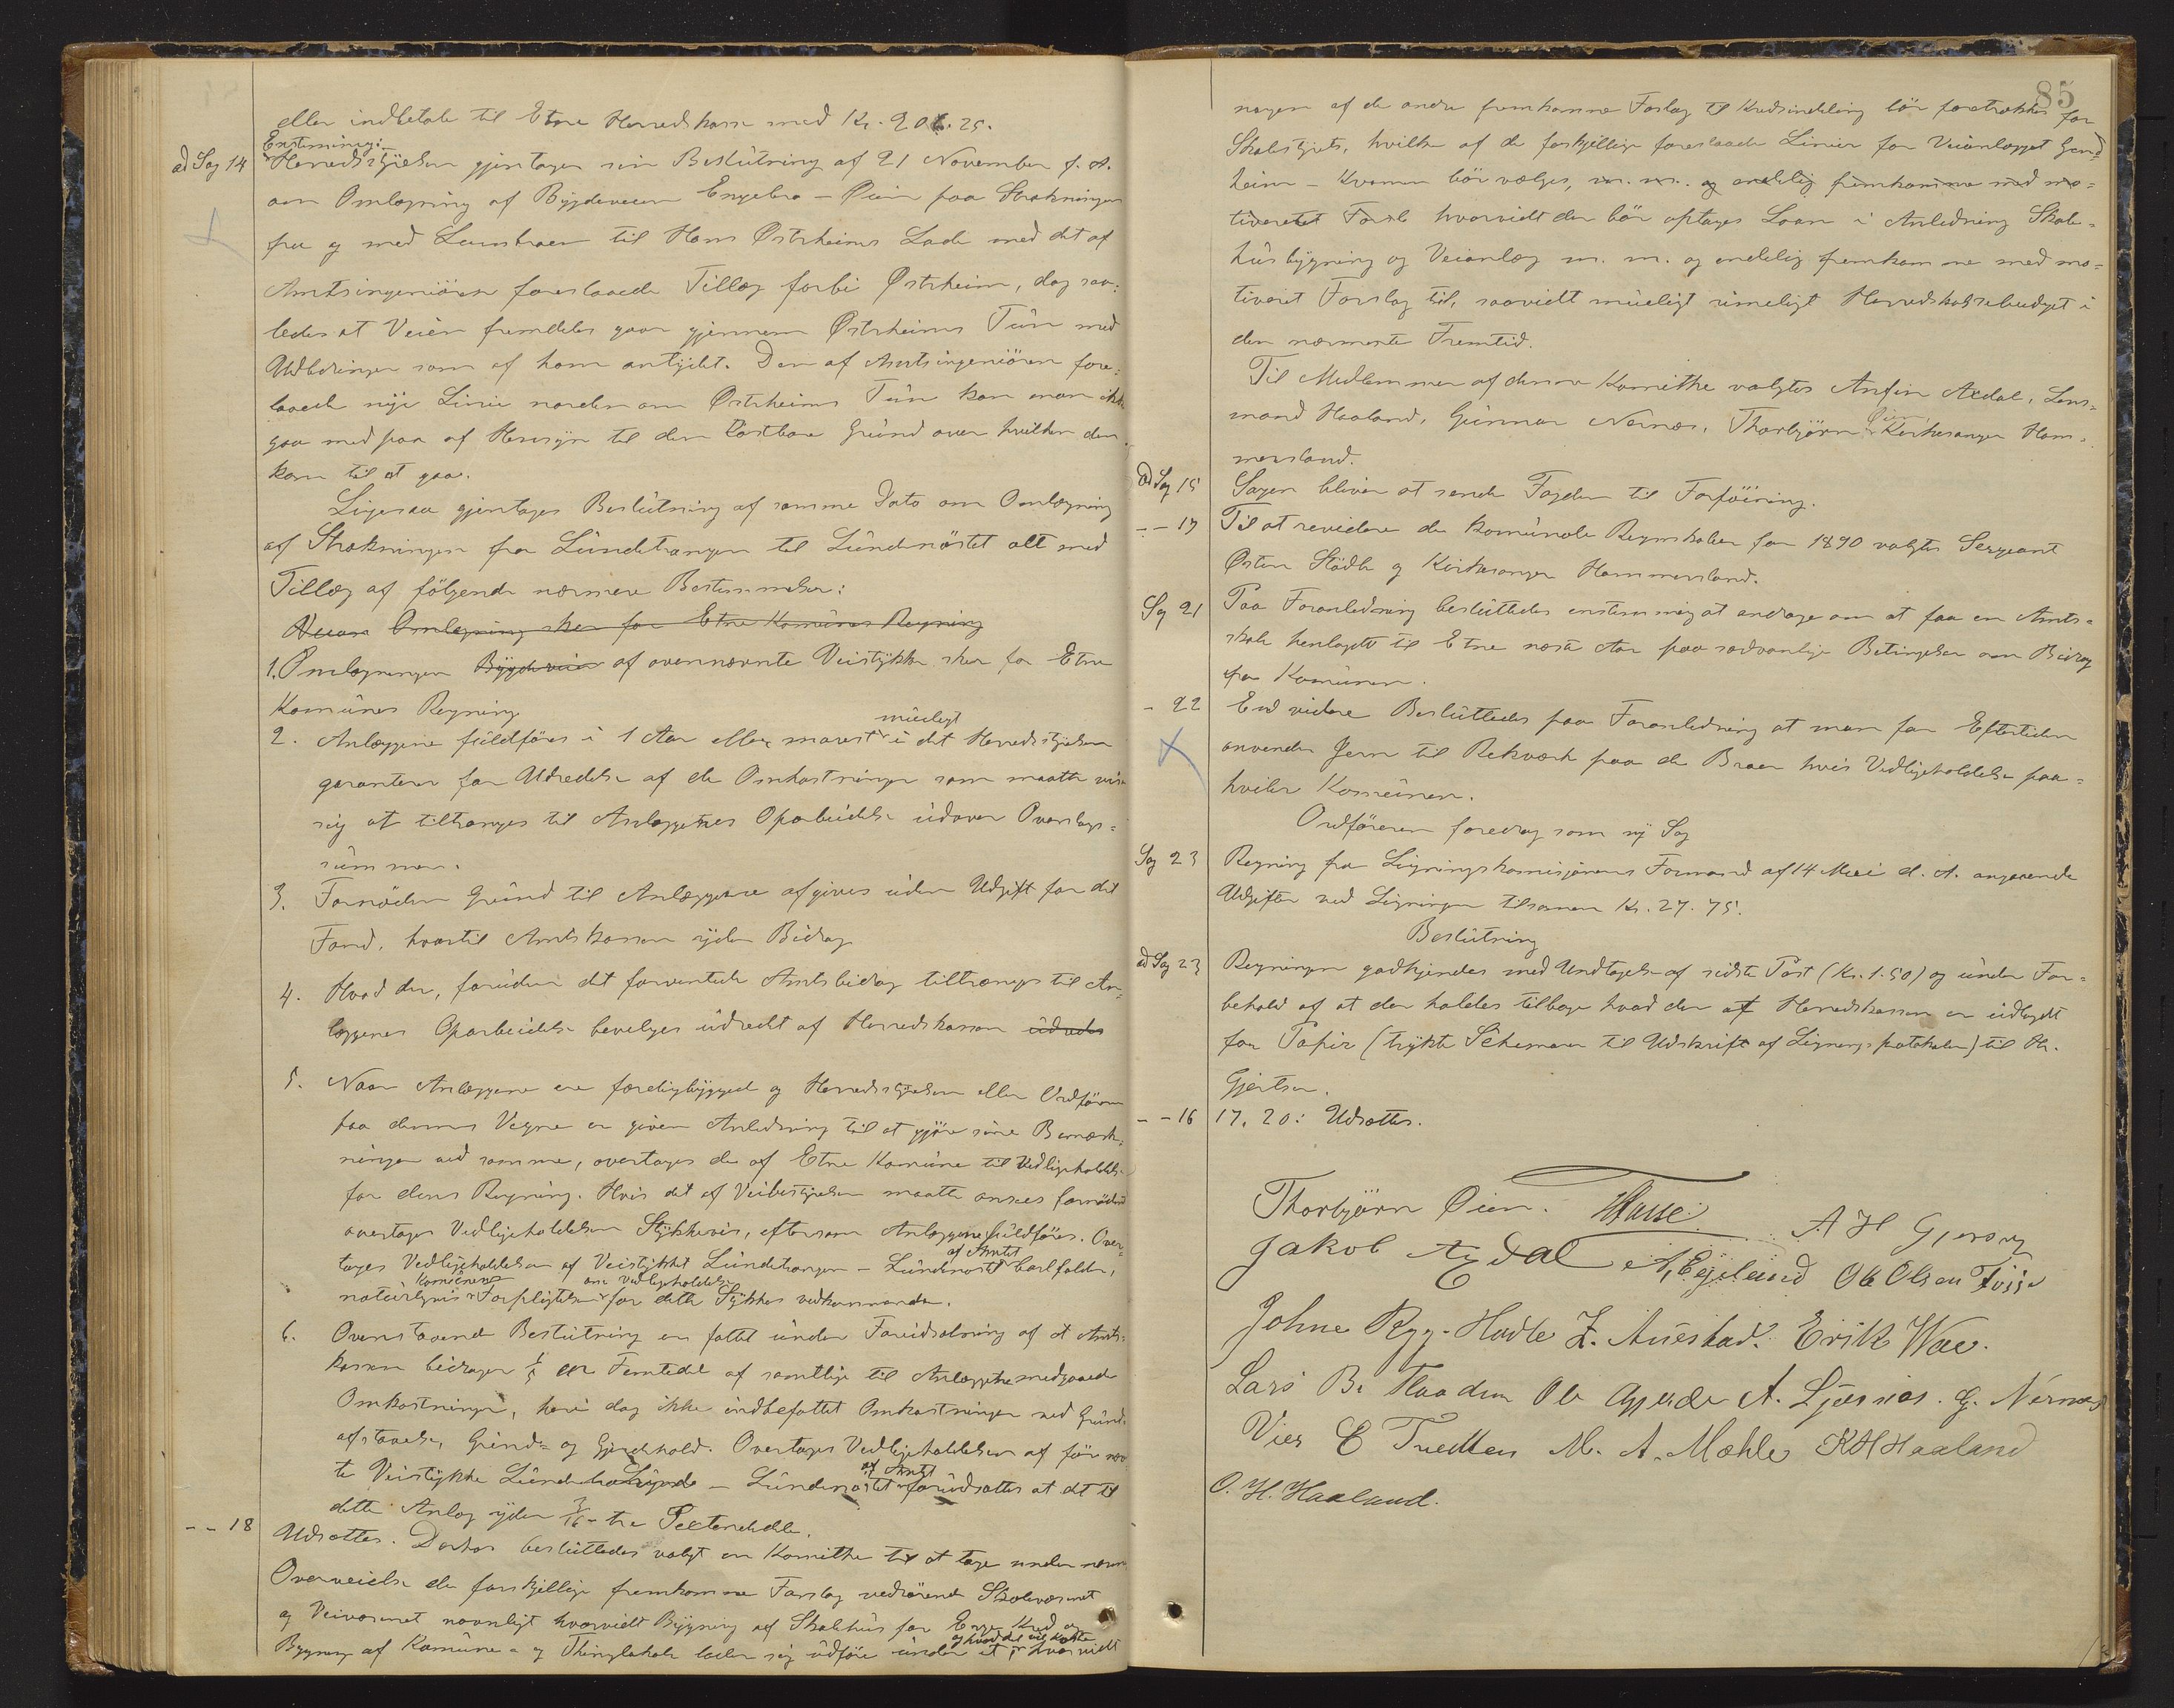 eller indbetale til Etne Herredskasse med Kr. 206.25.
Enstemmig:
ad Sag 14 Herredsstyrelsen gjentager sin Beslutning af 21 November f. A.
om Omlægning af Bygdeveien Engebro – Øien paa Strækningen
fra og med til Hans Østrheims Lade med det af
Amtsingeniøren foreslaaede Tillæg forbi Østrheim, dog saa-
ledes at Veien fremdeles gaar gjennem Østrheims Tun med
Udbedringer som af ham antydet. Den af Amtsingeniøren fore-
laaede nye Linie nordenom Østrheims Tun kan man ikke
gaa med paa af Hensyn til den kostbare Grund over hvilken den
kom til at gaa.
Ligesaa gjentages Beslutning af samme Dato om Omlægning
af Strækningen fra Lundetrangen til Lundenøstet alt med
Tillæg af følgende nærmere Bestemmelser:
Omlægning sker for Etne Komunes Regning
1. Omlægningen Bygdeveien af ovennævnte Veistykke sker for Etne
Komunes Regning
2. Anlæggene fuldføres i 1 Aar eller snarest mueligt i det Herredsstyrelsen
garanterer for Udredelse af de Omkostninger som maatte vise
sig at tiltrænges til Anlæggenes Oparbeidelse udover Overslags-
summen.
3. Fornøden Grund til Anlæggene afgives uden Udgift for det
Fond, hvortil Amtskassen yder Bidrag
4. Hvad der, foruden det forventede Amtsbidrag tiltrænges til An-
læggenes Oparbeidelse bevilges udredt af Herredskassen udredes
5. Naar Anlæggene ere færdigbygged og Herredsstyrelsen eller Ordføren
paa dennes Vegne er given Anledning til at gjøre sine Bemærk-
ninger ved samme, overtages de af Etne Komune til Vedligeholdelse
for dens Regning. Hvis det af Veibestyrelsen maatte ansees fornødent
overtages Vedligeholdelsen Stykkevis, eftersom Anlæggene fuldføres. Over-
tages Vedligeholdelsen af Veistykket Lundetrangen – Lundenøstet af Amtet bortfalder,
naturligvis Komunens Forpligtelse om Vedligeholdelse for dette Stykkes vedkommende.
6. Ovenstaaende Beslutning er fattet under Forudsætning af at Amts-
kassen bidrager 1/5 en Femtedel af samtlige til Anlæggene medgaaede
Omkostninger, heri dog ikke indbefattet Omkostninger ved Grund-
afstaaelse, Grind- og Gjerdehold. Overtages Vedligeholdelsen af før nævn
te Veistykke – Lundenøstet af Amtet forudsættes at det til
dette Anlæg yder 3/16 – tre Sextendedele.
- - 18 Udsættes. Derhos besluttedes valgt en Komithe til at tage under nærm
Overveielse de forskjellige fremkomne Forslag vedrørende Skolevæsenet
og Veivæsenet navnligt hvorvidt Bygning af Skolehus for Enge Kred og
Bygning af Komune- og Thinglokale lader sig udføre under et og hvad det vil koste, hvorvidt
85
nogen af de andre fremkomne Forslag til Kredsindeling bør foretrækkes for
Skolestyrets, hvilke af de forskjellige foreslaaede Linier for Veianlægget Grind-
heim – Kvammen bør vælges, m. m. og endelig fremkomme med mo-
tiveretet Forsl hvorvidt der bør optages Laan i Anledning Skole-
husbygning og Veianlæg m. m. og endelig fremkomme med mo-
tiveret Forslag til, saavidt mueligt rimeligt Herredskassebudget i
den nærmeste Fremtid.
Til Medlemmer af denne Komithe valgtes Anfin Axdal, Lens-
mand Haaland, Gunnar Nernæs, Thorbjørn Øien, Kirkesanger Ham-
mersland.
ad Sag 15 Sagen bliver at sende Fogden til Forføining.
- - 19 Til at revidere de komunale Regnskaber for 1890 valgtes Sergeant
Østen Stødle og Kirkesanger Hammersland.
Sag 21 Paa Foranledning besluttedes enstemmig at andrage om at faa en Amts-
skole henlagt til Etne næste Aar paa sædvanlige Betingelser om Bidrag
fra Komunen.
- 22 End videre Besluttedes paa Foranledning at man for Eftertiden
anvender Jern til Rekværk paa de Broer hvis Vedligeholdelse paa-
hviler Komunen.
Ordføreren foredrog som ny Sag
Sag 23 Regning fra Ligningskomisjonens Formand af 14 Mai d. A. angaaende
Udgifter ved Ligningen tilsammen Kr. 27.75.
Beslutning
ad Sag 23 Regningen godkjendes med Undtagelse af sidste Post (Kr. 1.50) og under For-
behold af at der holdes tilbage hvad der af Herredskassen er udlagdt
for Papir (trykte Schemaer til Udskrift af Ligningsprotokolen) til Hr.
Gjertsen.
- - 16 17, 20: Udsættes.
Thorbjørn Øien. A H Gjersvig
Jakob Axdal A, Egeland Ole Olsen Tøsse
Johne Rygg-Hadle Z. Auestad. Erik Wae.
Lars B. Flaaden Ole Gjerde A. Ljosnæs. G. Nernæs
Vier E Tvedten M. A. Mæhle KHHaaland
O. H. Haaland.